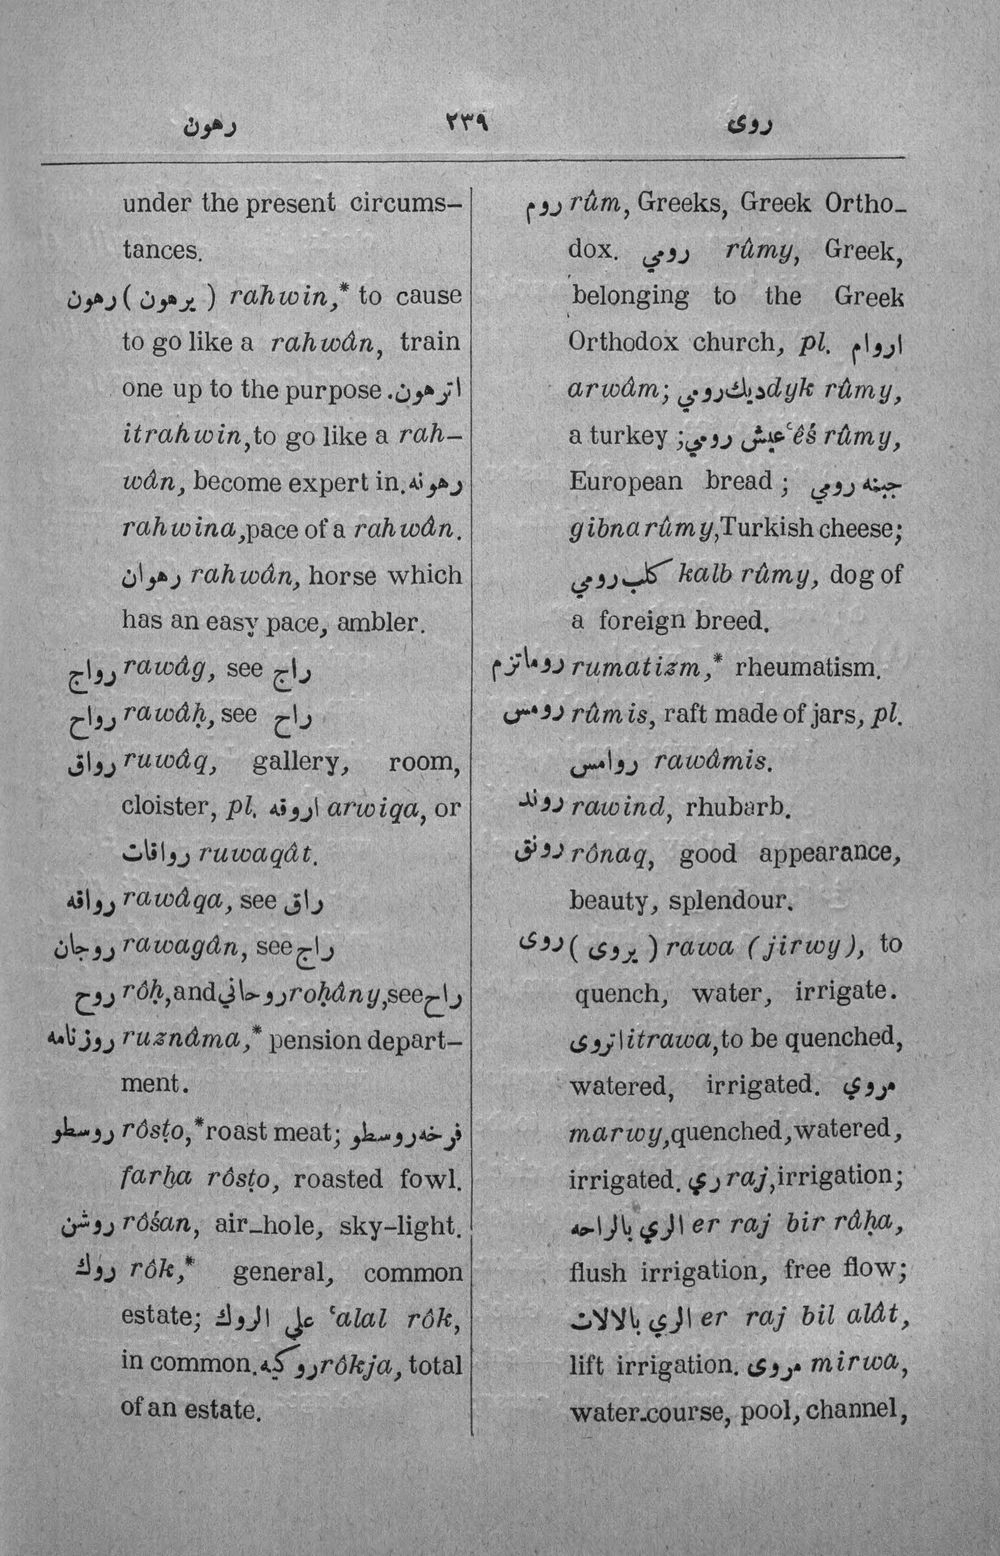 رهون ٢٣٩ روى
under the present circums-
tances.
رهون ( يرهون ) rahwin,* to cause
to go like a rahwân, train
one up to the purpose. اترهون
itrahwin, to go like a rah-
wân, become expert in. رهونه
rahwina, pace of a rahwân.
رهوان rahwân, horse which
has an easy pace, ambler.
رواج rawâg, see راج
رواح rawâḥ, see راح
رواق ruwâq, gallery, room,
cloister, pl. اروقه arwiqa, or
رواقات ruwaqât.
رواقه rawâqa, see راق
روجان rawagân, see راج
روح rôḥ, and روحاني roḥâny, see راح
روزنامه ruznâma,* pension depart-
ment.
روسطو rôsṭo,* roast meat; فرخه روسطو
farḫa rôsṭo, roasted fowl.
روشن rôśan, air-hole, sky-light.
روك rôk,* general, common
estate; علي الروك ʿalal rôk,
in common. روكيه rôkja, total
of an estate.
روم rûm, Greeks, Greek Ortho-
dox. رومي rûmy, Greek,
belonging to the Greek
Orthodox church, pl. اروام
arwâm; ديك رومي dyk rûmy,
a turkey; عيش رومي ʿêś rûmy,
European bread; جبنه رومي
gibna rûmy, Turkish cheese;
كلب رومي kalb rûmy, dog of
a foreign breed.
روماتزم rumatizm,* rheumatism.
رومس rûmis, raft made of jars, pl.
روامس rawâmis.
روند rawind, rhubarb.
رونق rônaq, good appearance,
beauty, splendour.
روى ( يروى ) rawa (jirwy), to
quench, water, irrigate.
اتروى itrawa, to be quenched,
watered, irrigated. مروي
marwy, quenched, watered,
irrigated. ري raj, irrigation;
الري بالراحه er raj bir râḥa,
flush irrigation, free flow;
الري بالالات er raj bil alât,
lift irrigation. مروى mirwa,
water-course, pool, channel,